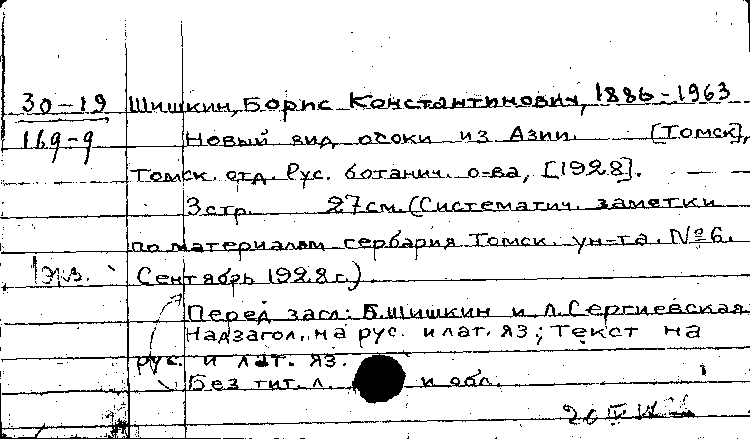 30-19 Шишкин, Борис Константинович, 1886-1963
169-9 Новый вид осоки из Азии. [Томск],
Томск. отд. Рус. ботанич. о-ва, [1928].
3 стр. 27 см. (Систематич. заметки
по материалам гербария Томск. ун-та. № 6.
1 экз. Сентябрь 1928 г.)
Перед загл.: Б. Шишкин и Л. Сергиевская
Надзагол. на рус. и лат. яз; Текст на
рус. и лат. яз.
Без тит. л. и обл.
20 IV